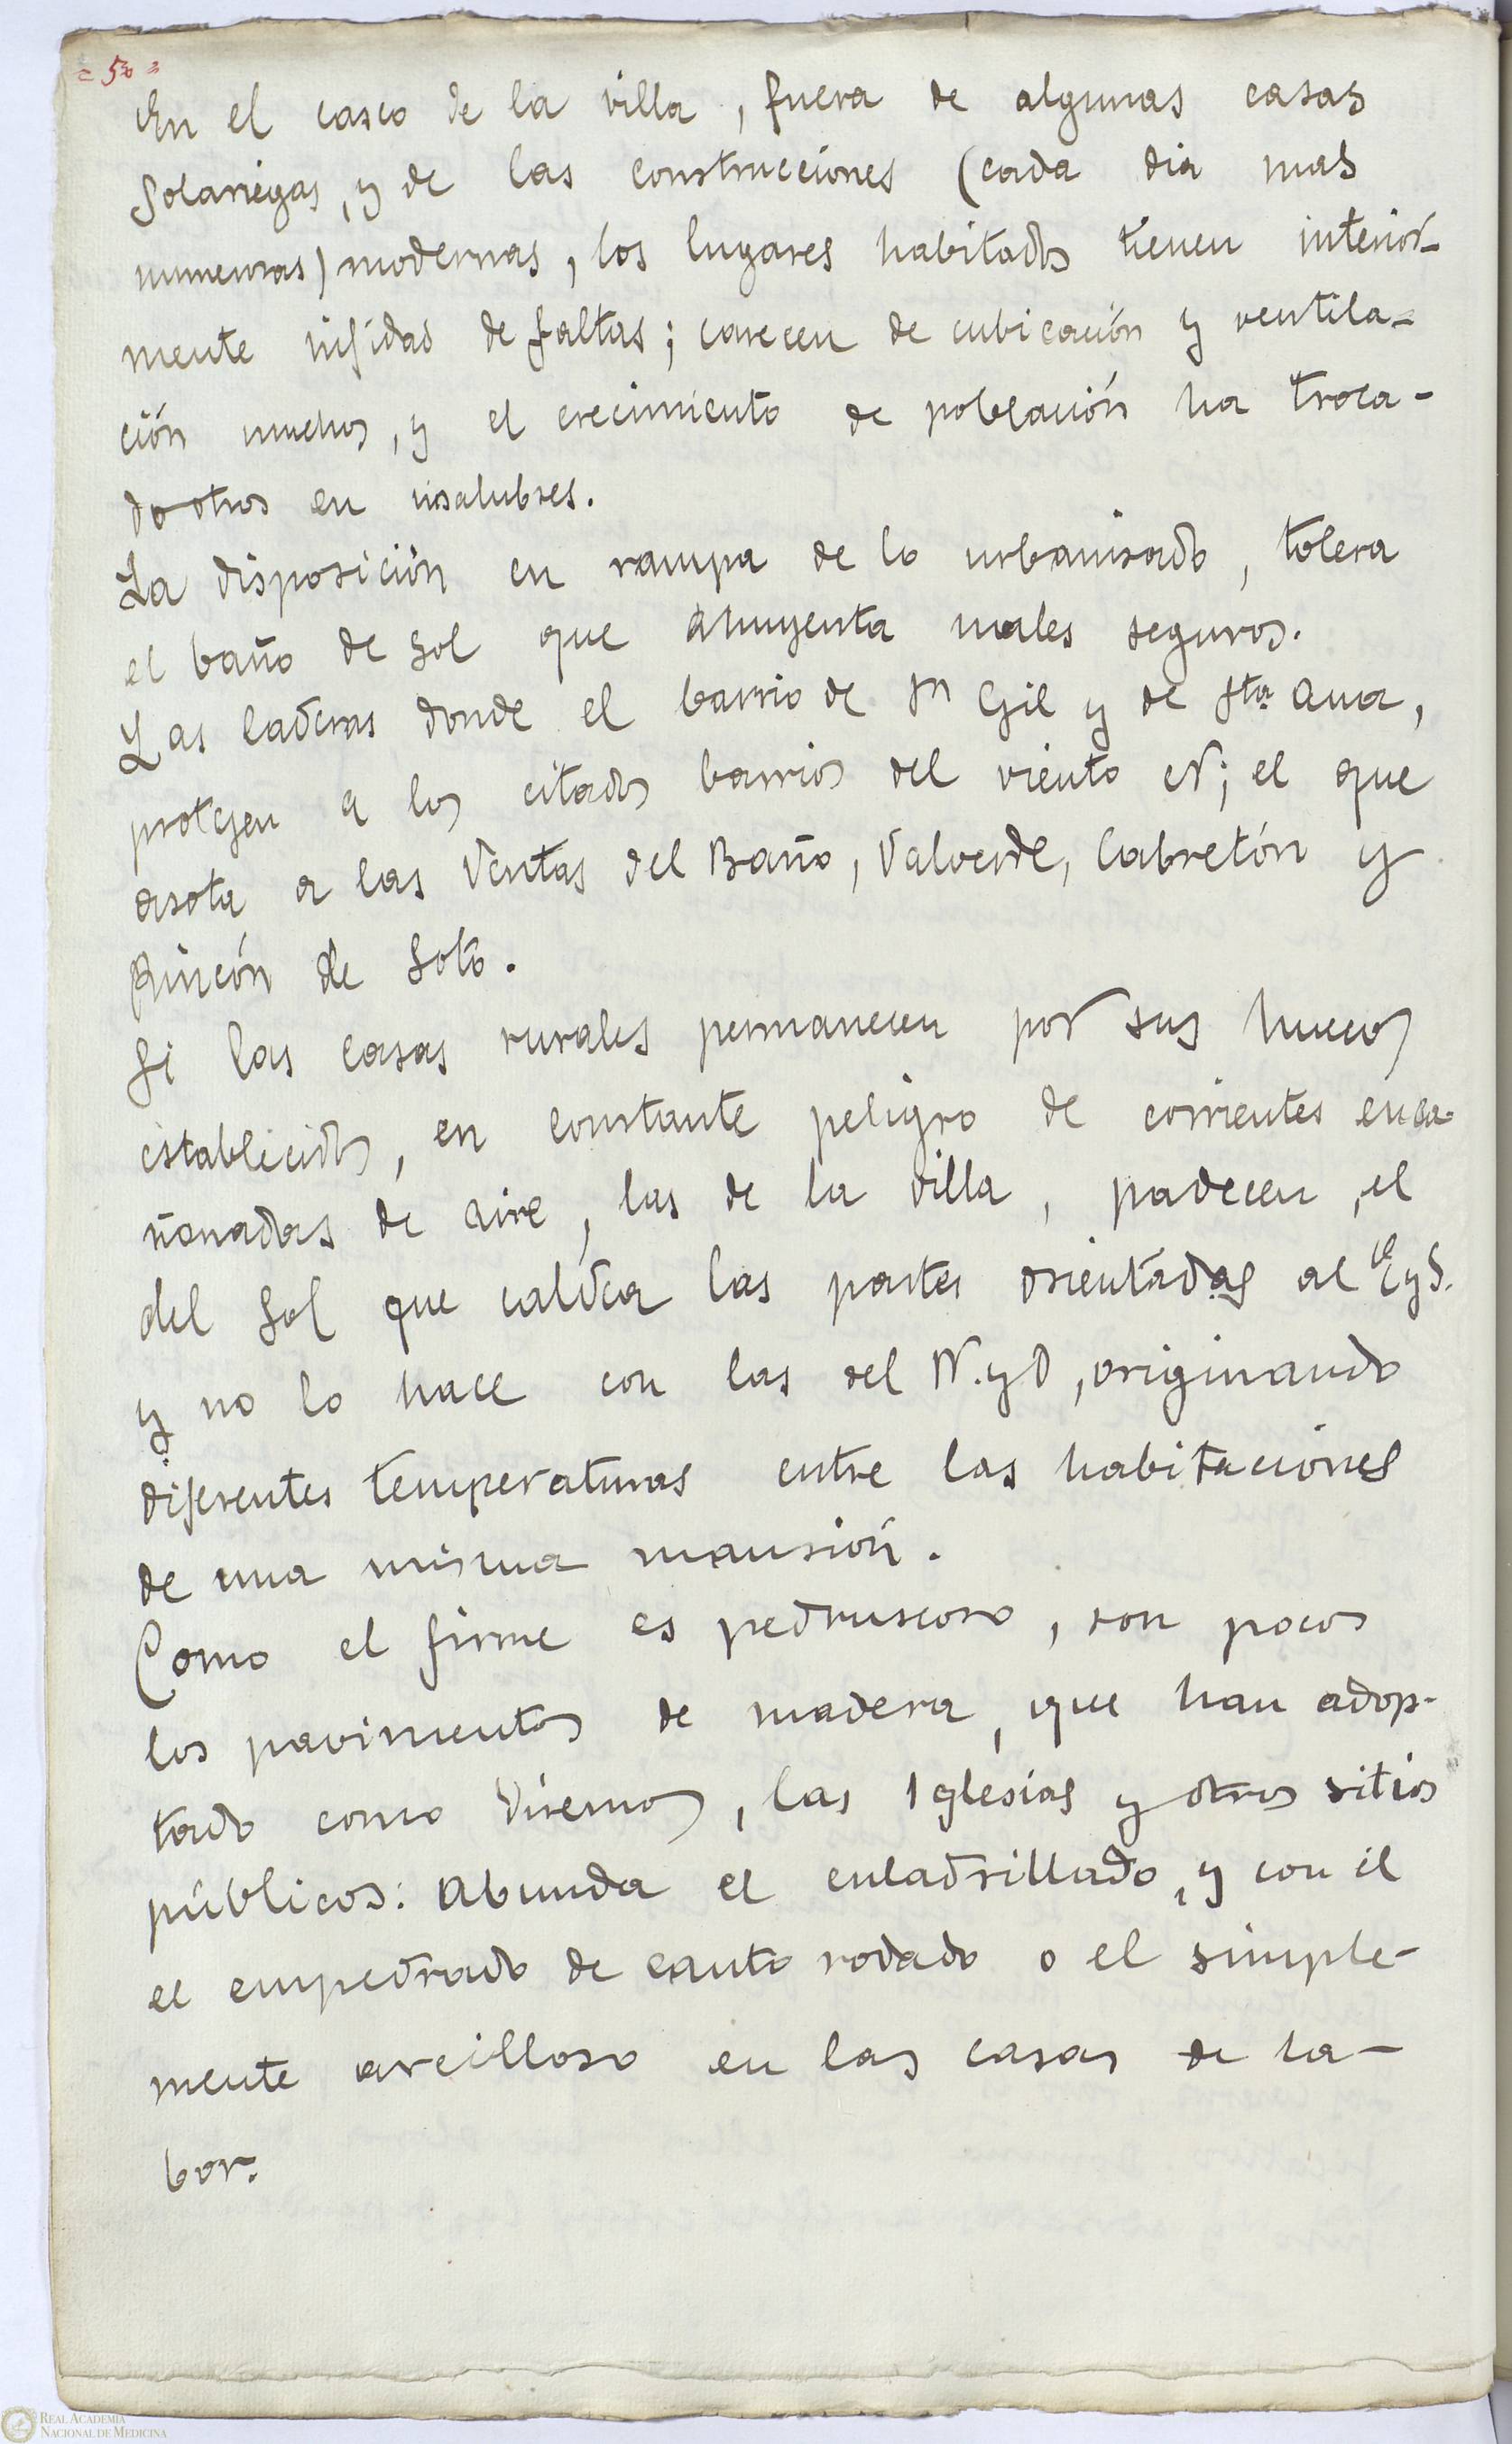 = 50 =
En el casco de la villa, fuera de algunas casas
Solariegas, y de las construcciones (cada dia mas
numerosas) modernas, los lugares habitados tienen interior-
mente nifidas de faltas; carecen de cubicación y ventila-
ción muchos, y el crecimiento de población ha troca-
do otros en insalubres.
La disposición en rampa de lo urbanisado, tolera
el baño de sol que ahuyenta males seguros.
Las laderas donde el barrio de Sn Gil y de Sta Ana,
protejen a los citados barrios del viento N; el que
asota a las Ventas del Baño, Valverde, Cabretón y
Rincón de Soto.
Si las casas rurales permanecen por sus huecos
establecidos, en constante peligro de corrientes enca-
ñonadas de aire, las de la villa, padecen, el
del Sol que caldea las partes orientadas al E y S.
y no lo hace con las del N. y O, originando
diferentes temperaturas entre las habitaciones
de una misma mansión.
Como el firme es pedruscoso, son pocos
los pavimentos de madera, que han adop-
tado como diremos, las Iglesias y otros sitios
públicos: abunda el enladrillado, y con él
el empedrado de canto rodado o el simple-
mente arcilloso en las casas de la-
bor.
REAL ACADEMIA
NACIONAL DE MEDICINA